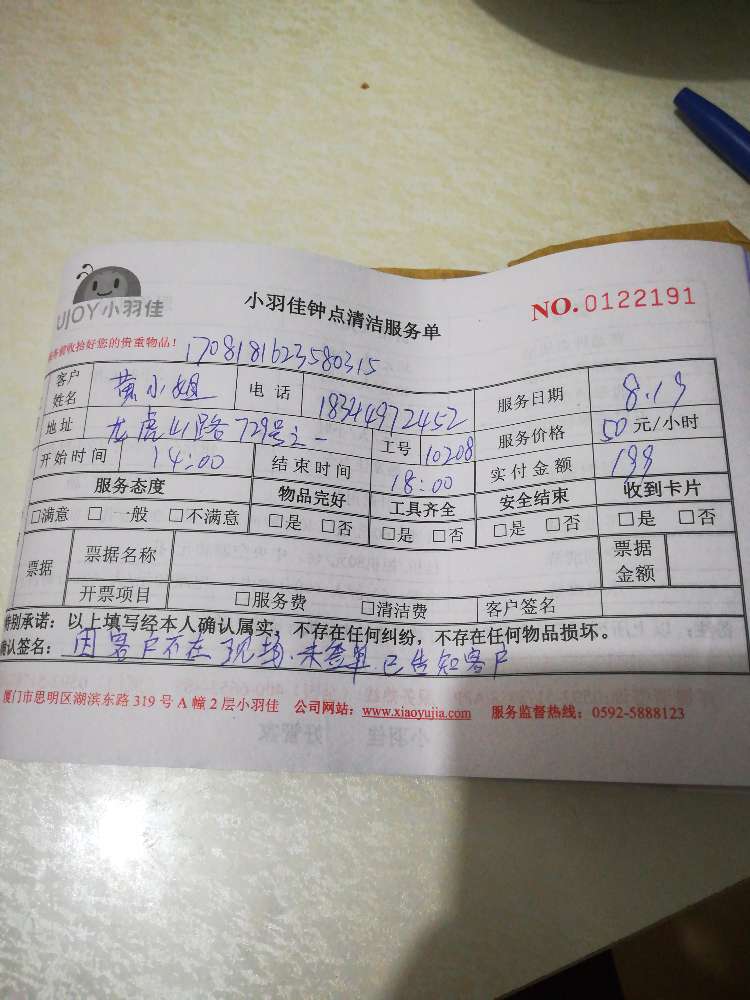 UJOY小羽佳
小羽佳钟点清洁服务单
NO.0122191
收拾好您的贵重物品！ 1708181623580315
客户姓名 黄小姐 电话 18344972452 服务日期 8.19
地址 龙虎山路729号之一 工号 10208 服务价格 50元/小时
开始时间 14:00 结束时间 18:00 实付金额 199
服务态度 物品完好 工具齐全 安全结束 收到卡片
□满意 □一般 □不满意 □是 □否 □是 □否 □是 □否 □是 □否
票据 票据名称 票据金额
开票项目 □服务费 □清洁费 客户签名
特别承诺：以上填写经本人确认属实，不存在任何纠纷，不存在任何物品损坏。
确认签名：因客户不在现场.未签单.已告知客户
厦门市思明区湖滨东路319号A幢2层小羽佳 公司网站：www.xiaoyujia.com 服务监督热线：0592-5888123